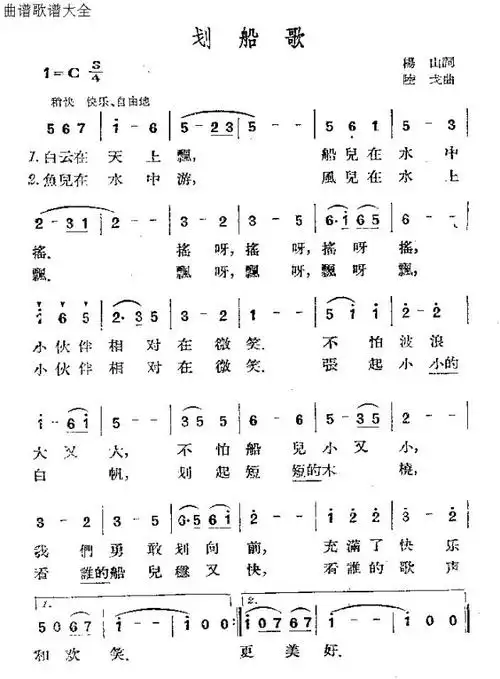 曲谱歌谱大全
划船歌
1=C 3/4
楊山詞
陸戈曲
稍快 快乐、自由地
5 6 7 | i - 6 | 5 - 23 | 5 - - | 5 6 i | 5 - 3 |
1.白云在天上飄, 船兒在水中
2.魚兒在水中游, 風兒在水上
2 - 31 | 2 - - | 3 - 2 | 3 - 5 | 6·i 65 | 6 - - |
搖. 搖呀,搖呀,搖呀搖,
飄. 飄呀,飄呀,飄呀飄,
i 6 5 | 2·3 5 | 3 - 2 | 1 - - | 5 i i | 2 - 2 |
小伙伴相对在微笑. 不怕波浪
小伙伴相对在微笑. 張起小小的
i - 6i | 5 - - | 3 5 5 | 6 - 6 | 5 - 35 | 5 - - |
大又大, 不怕船兒小又小,
白帆, 划起短短的木橈,
3 - 2 | 3 - 5 | 6·5 6i | 2 - - | i 2 2 | 3 - 2 |
我們勇敢划向前, 充滿了快乐
看誰的船兒穩又快, 看誰的歌声
1. 2.
5 0 67 | i - - | i 0 0 :| i0 76 7 | i - - | i 0 0 ‖
和欢笑. 更美好.